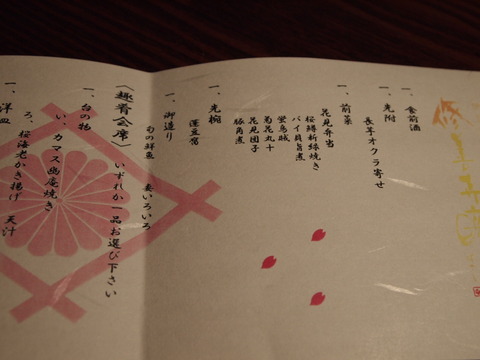 一、食前酒
一、先附
長芋オクラ寄せ
一、前菜
花見弁当
桜鱒新緑焼き
バイ貝旨煮
蛍烏賊
菊花丸十
花見団子
豚角煮
一、先椀
蓮豆腐
一、御造り
旬の鮮魚 妻いろいろ
〈趣肴会席〉 いずれか一品お選び下さい
一、台の物
い、カマス幽庵焼き
ろ、桜海老かき揚げ 天汁
一、洋皿